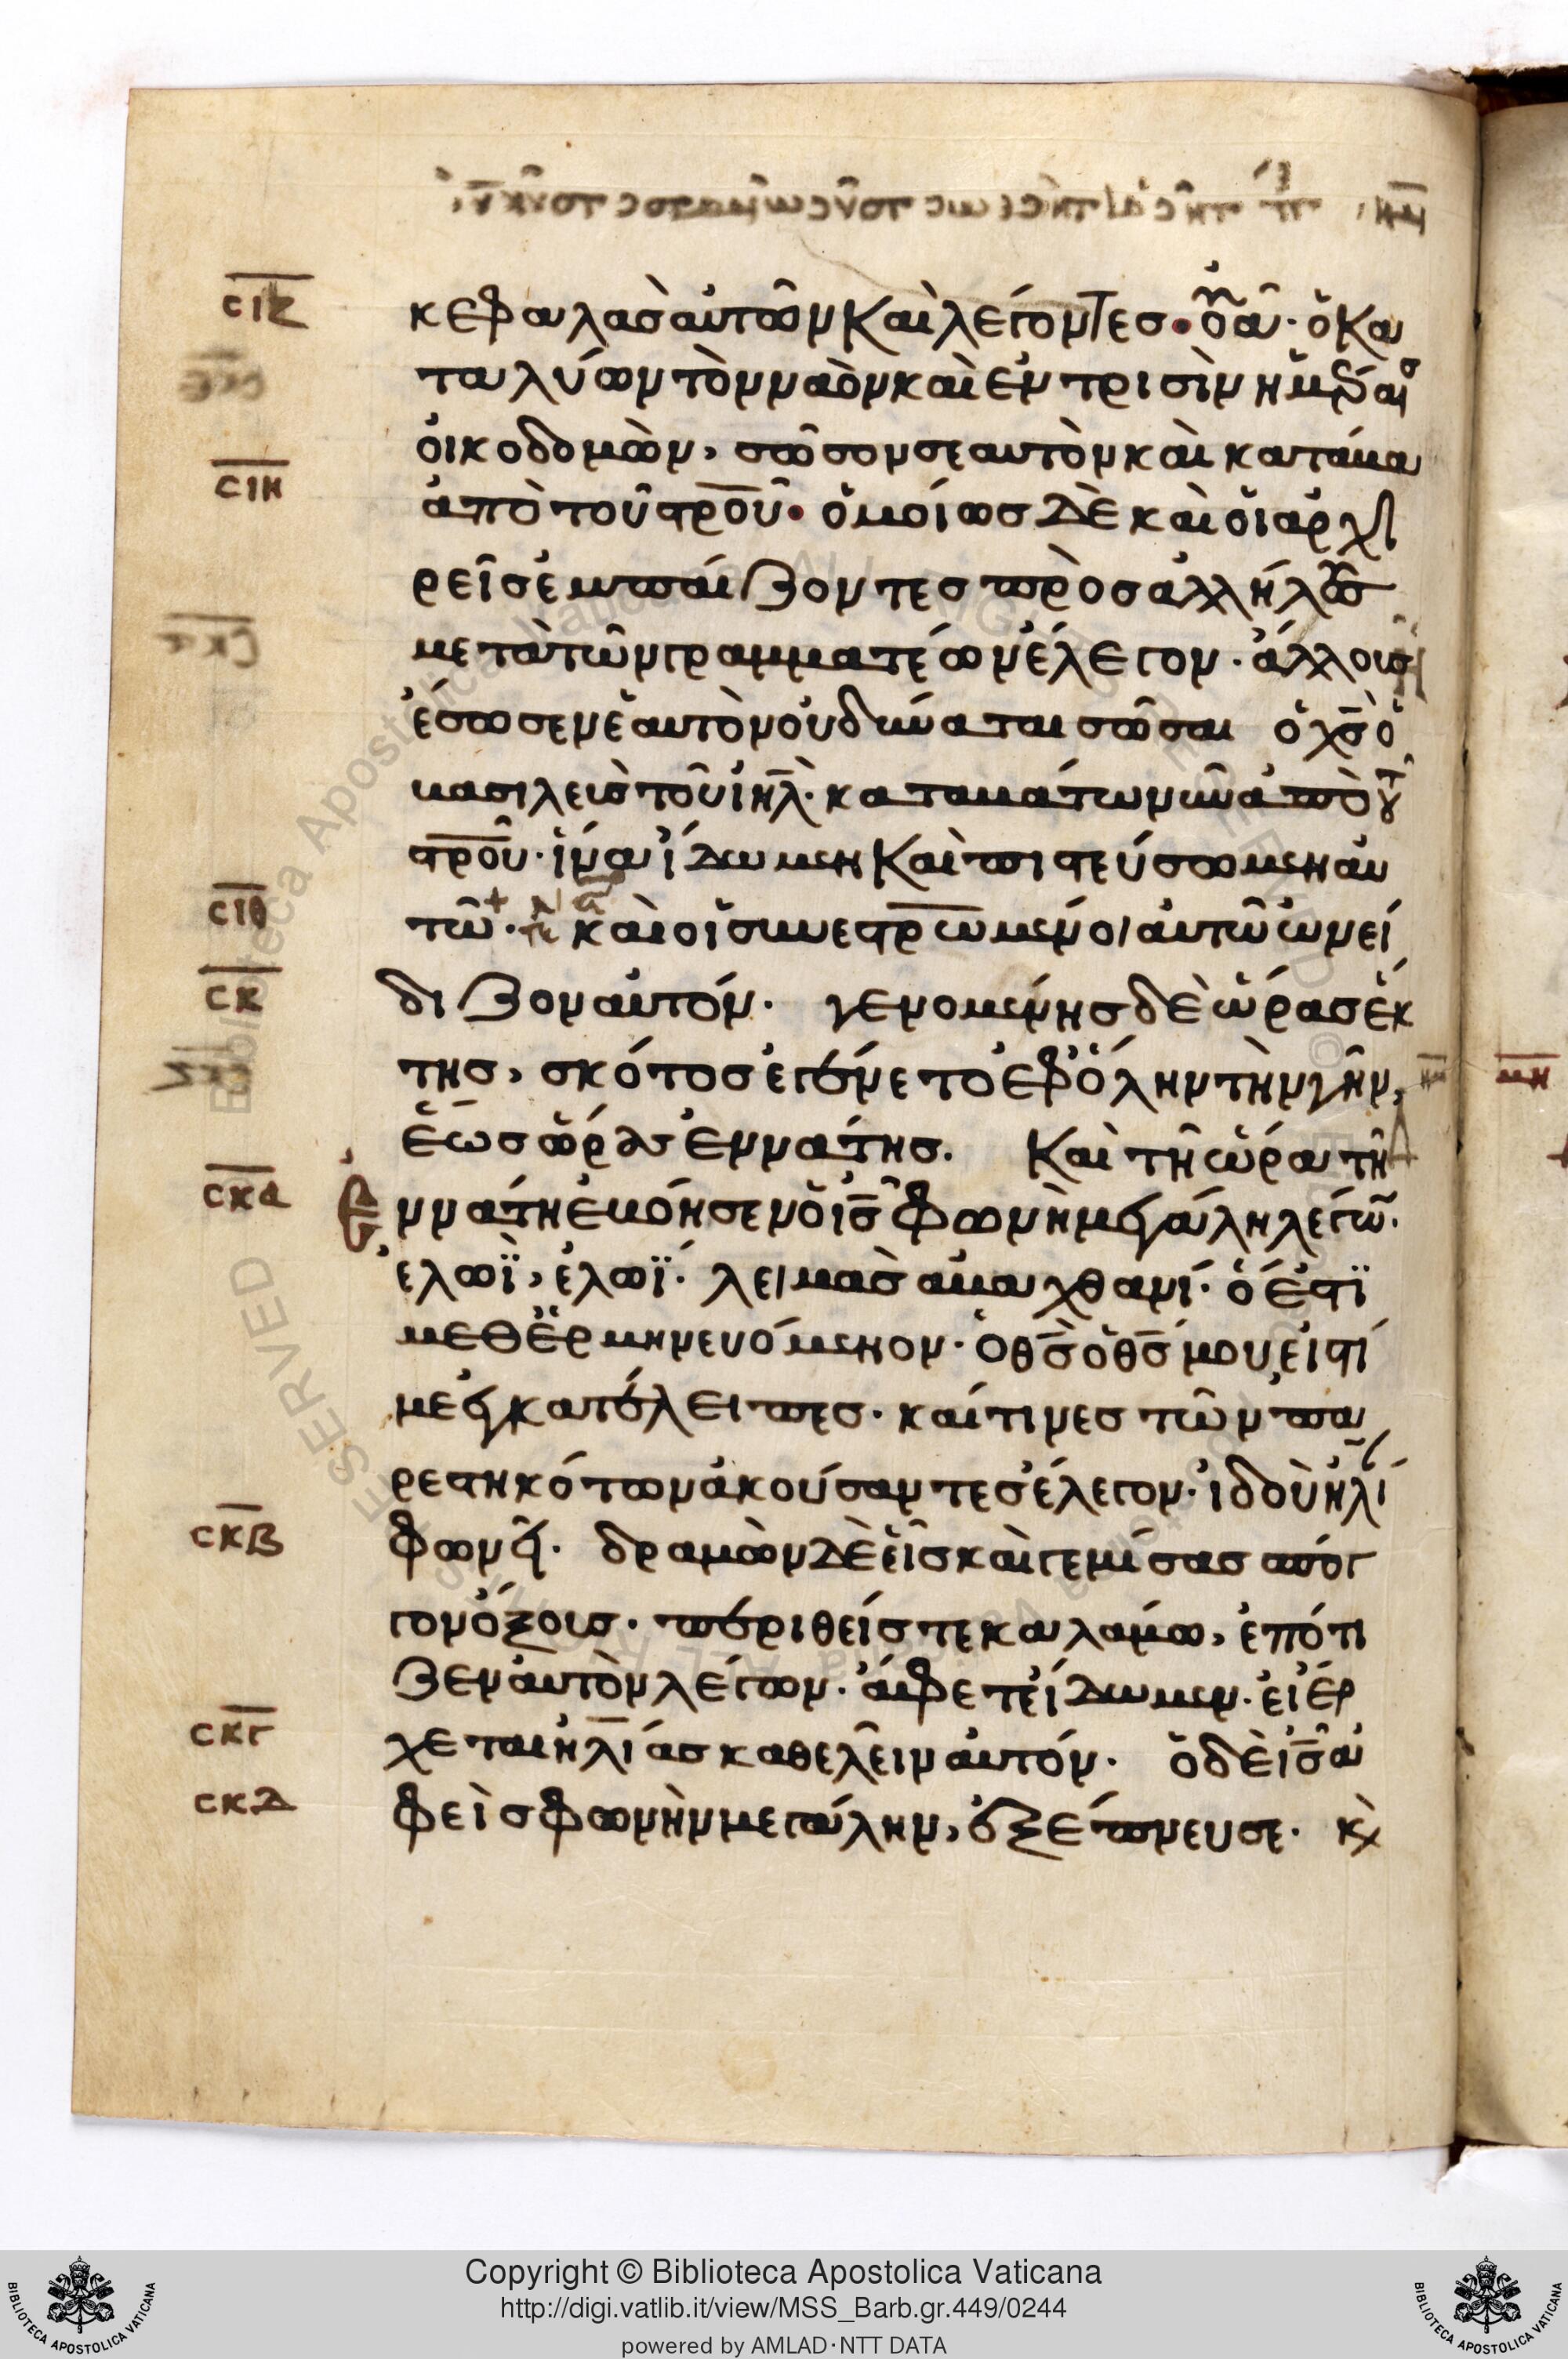 κεφαλὰσ αὐτῶν καὶ λέγοντεσ· οὐᾶ· ὁ κα
ταλύων τὸν ναὸν καὶ ἐν τρισὶν ἡμέραι
οἰκοδομῶν, σῶσον σεαυτὸν καὶ κατάβα
ἀπὸ τοῦ στροῦ· ὁμοίωσ δὲ καὶ οἱ ἀρχι
ρεῖσ ἐμπαίζοντεσ πρὸσ ἀλλήλουσ
μετὰ τῶν γραμματέων ἔλεγον· ἄλλουσ
ἔσωσεν ἑαυτὸν οὐ δύναται σῶσαι ὁ χσ ὁ
βασιλεὺσ τοῦ ιηλ· καταβάτω νῦν ἀπὸ τοῦ
στροῦ· ἵνα ἴδωμεν καὶ πιστεύσωμεν αυ
τῶ· καὶ οἱ συνεστρωμένοι αὐτῶ ὠνεί
διζον αὐτόν· γενομένησ δὲ ὥρασ ἕκ
τησ, σκότοσ ἐγένετο ἐφ ὅλην τὴν γῆν,
ἕωσ ὥρασ ἐννάτησ. καὶ τῆ ὥρα τῆ
ἐννάτη ἐβόησεν ὁ ισ φωνὴ μεγάλη λέγων·
ἐλωῒ, ἐλωῒ· λειμασαβαχθανί· ὅ ἐστι
μεθερμηνευόμενον· ὁ θσ ὁ θσ μου, εἰστί
με ἐγκατέλειπεσ· καί τινεσ τῶν πα
ρεστηκότων ἀκούσαντεσ ἔλεγον· ἰδοὺ ἠλί
φωνεῖ· δραμὼν δὲ εἷσ καὶ γεμίσασ σπόγ
γον ὄξουσ· περιθείσ τε καλάμω, ἐπότι
ζεν αὐτὸν λέγων· ἄφετε ἴδωμεν· εἰ ἔρ
χεται ἠλίασ καθελεῖν αὐτόν· ὁ δὲ ισ ἀ
φεὶσ φωνὴν μεγάλην, ἐξέπνευσε· κὶ
σιζ
σιη
σιθ
σκ
σκα
σκβ
σκγ
σκδ
Copyright © Biblioteca Apostolica Vaticana
http://digi.vatlib.it/view/MSS_Barb.gr.449/0244
powered by AMLAD·NTT DATA